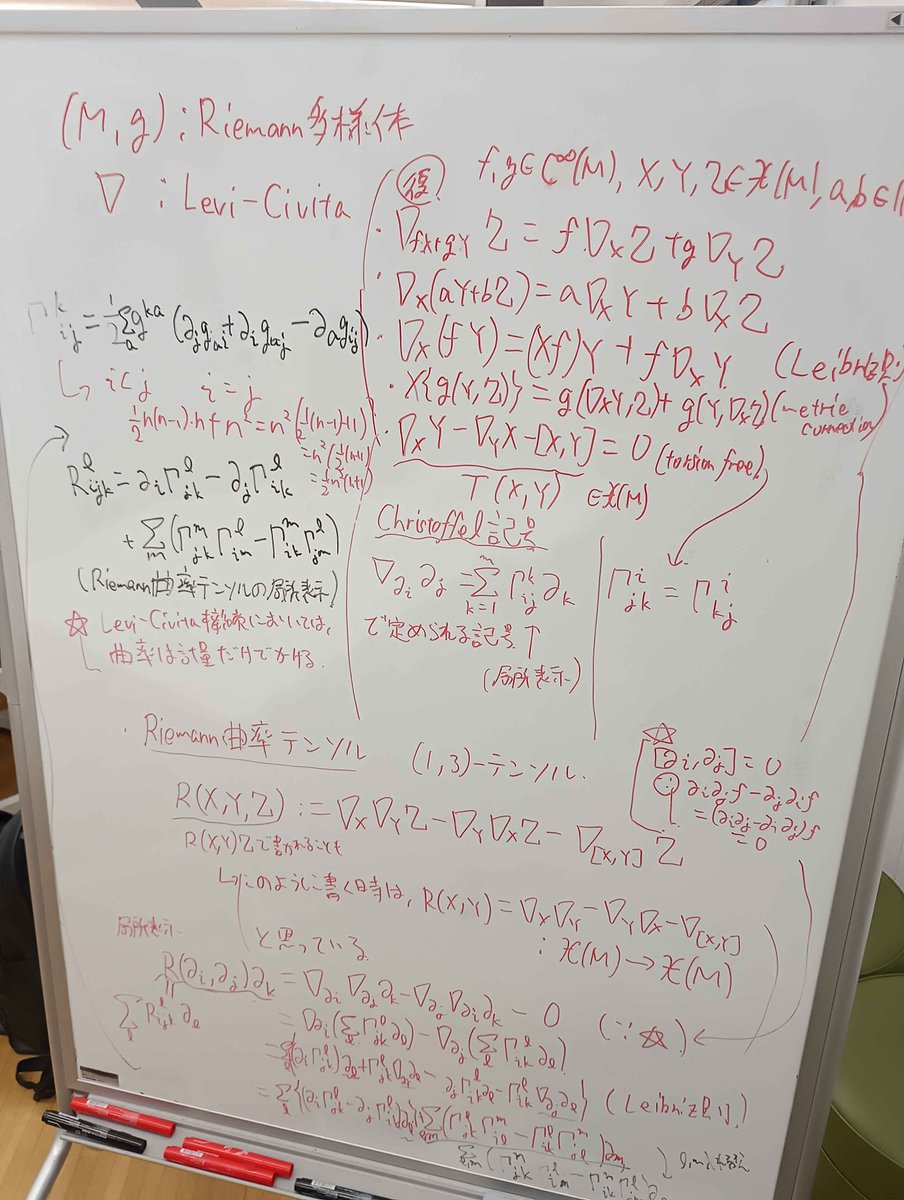 (M, g) : Riemann多様体
∇ : Levi-Civita
Γ^k_{ij} = 1/2 Σ_a g^{ka} (∂_j g_{ai} + ∂_i g_{aj} - ∂_a g_{ij})
↳ i<j i=j
1/2 n(n-1)・n + n^2 = n^2(1/2(n-1)+1)
= n^2(1/2(n+1))
= 1/2 n^2(n+1)
R^l_{ijk} = ∂_i Γ^l_{jk} - ∂_j Γ^l_{ik}
+ Σ_m (Γ^m_{jk} Γ^l_{im} - Γ^m_{ik} Γ^l_{jm})
(Riemann曲率テンソルの局所表示)
☆ Levi-Civita接続においては,
曲率は計量だけでかける.
f, g ∈ C^∞(M), X, Y, Z ∈ 𝔛(M), a, b ∈
・∇_{fX+gY} Z = f∇_X Z + g∇_Y Z
・∇_X(aY+bZ) = a∇_X Y + b∇_X Z
・∇_X(fY) = (Xf)Y + f∇_X Y (Leibniz則)
・X{g(Y,Z)} = g(∇_X Y, Z) + g(Y, ∇_X Z) (metric connection)
・∇_X Y - ∇_Y X - [X,Y] = 0 (torsion free)
T(X,Y) ∈ 𝔛(M)
Christoffel記号
∇_{∂_i} ∂_j = Σ_{k=1}^n Γ^k_{ij} ∂_k
で定められる記号 ↑
(局所表示)
Γ^i_{jk} = Γ^i_{kj}
・Riemann曲率テンソル (1,3)-テンソル.
R(X,Y,Z) := ∇_X ∇_Y Z - ∇_Y ∇_X Z - ∇_{[X,Y]} Z
R(X,Y)Zで書かれることも
↳このように書く時は, R(X,Y) = ∇_X ∇_Y - ∇_Y ∇_X - ∇_{[X,Y]}
: 𝔛(M) → 𝔛(M)
と思っている
☆
[∂_i, ∂_j] = 0
∂_i ∂_j f - ∂_j ∂_i f
= (∂_i ∂_j - ∂_i ∂_j) f
= 0
局所表示
R(∂_i, ∂_j)∂_k = ∇_{∂_i} ∇_{∂_j} ∂_k - ∇_{∂_j} ∇_{∂_i} ∂_k - 0 (∵ ☆)
Σ_l R^l_{ijk} ∂_l
= ∇_{∂_i} (Σ_l Γ^l_{jk} ∂_l) - ∇_{∂_j} (Σ_l Γ^l_{ik} ∂_l)
= Σ_l {(∂_i Γ^l_{jk}) ∂_l + Γ^l_{jk} ∇_{∂_i} ∂_l - ∂_j Γ^l_{ik} ∂_l - Γ^l_{ik} ∇_{∂_j} ∂_l} (Leibniz則)
= Σ_l {(∂_i Γ^l_{jk} - ∂_j Γ^l_{ik}) ∂_l} + Σ_{l,m} (Γ^l_{jk} Γ^m_{il} - Γ^l_{ik} Γ^m_{jl}) ∂_m